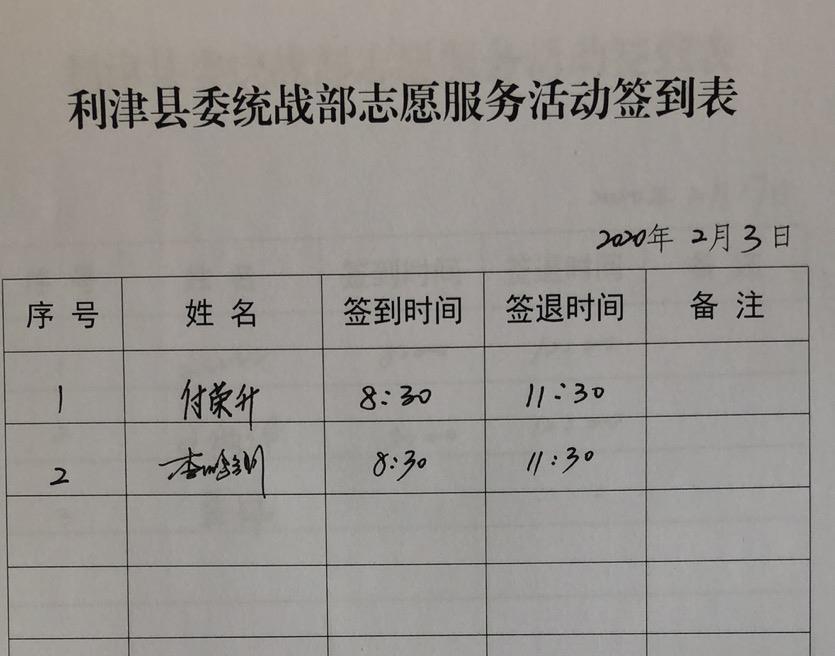 利津县委统战部志愿服务活动签到表
2020年 2月 3日
序号 姓名 签到时间 签退时间 备注
1 付荣升 8:30 11:30
2 8:30 11:30